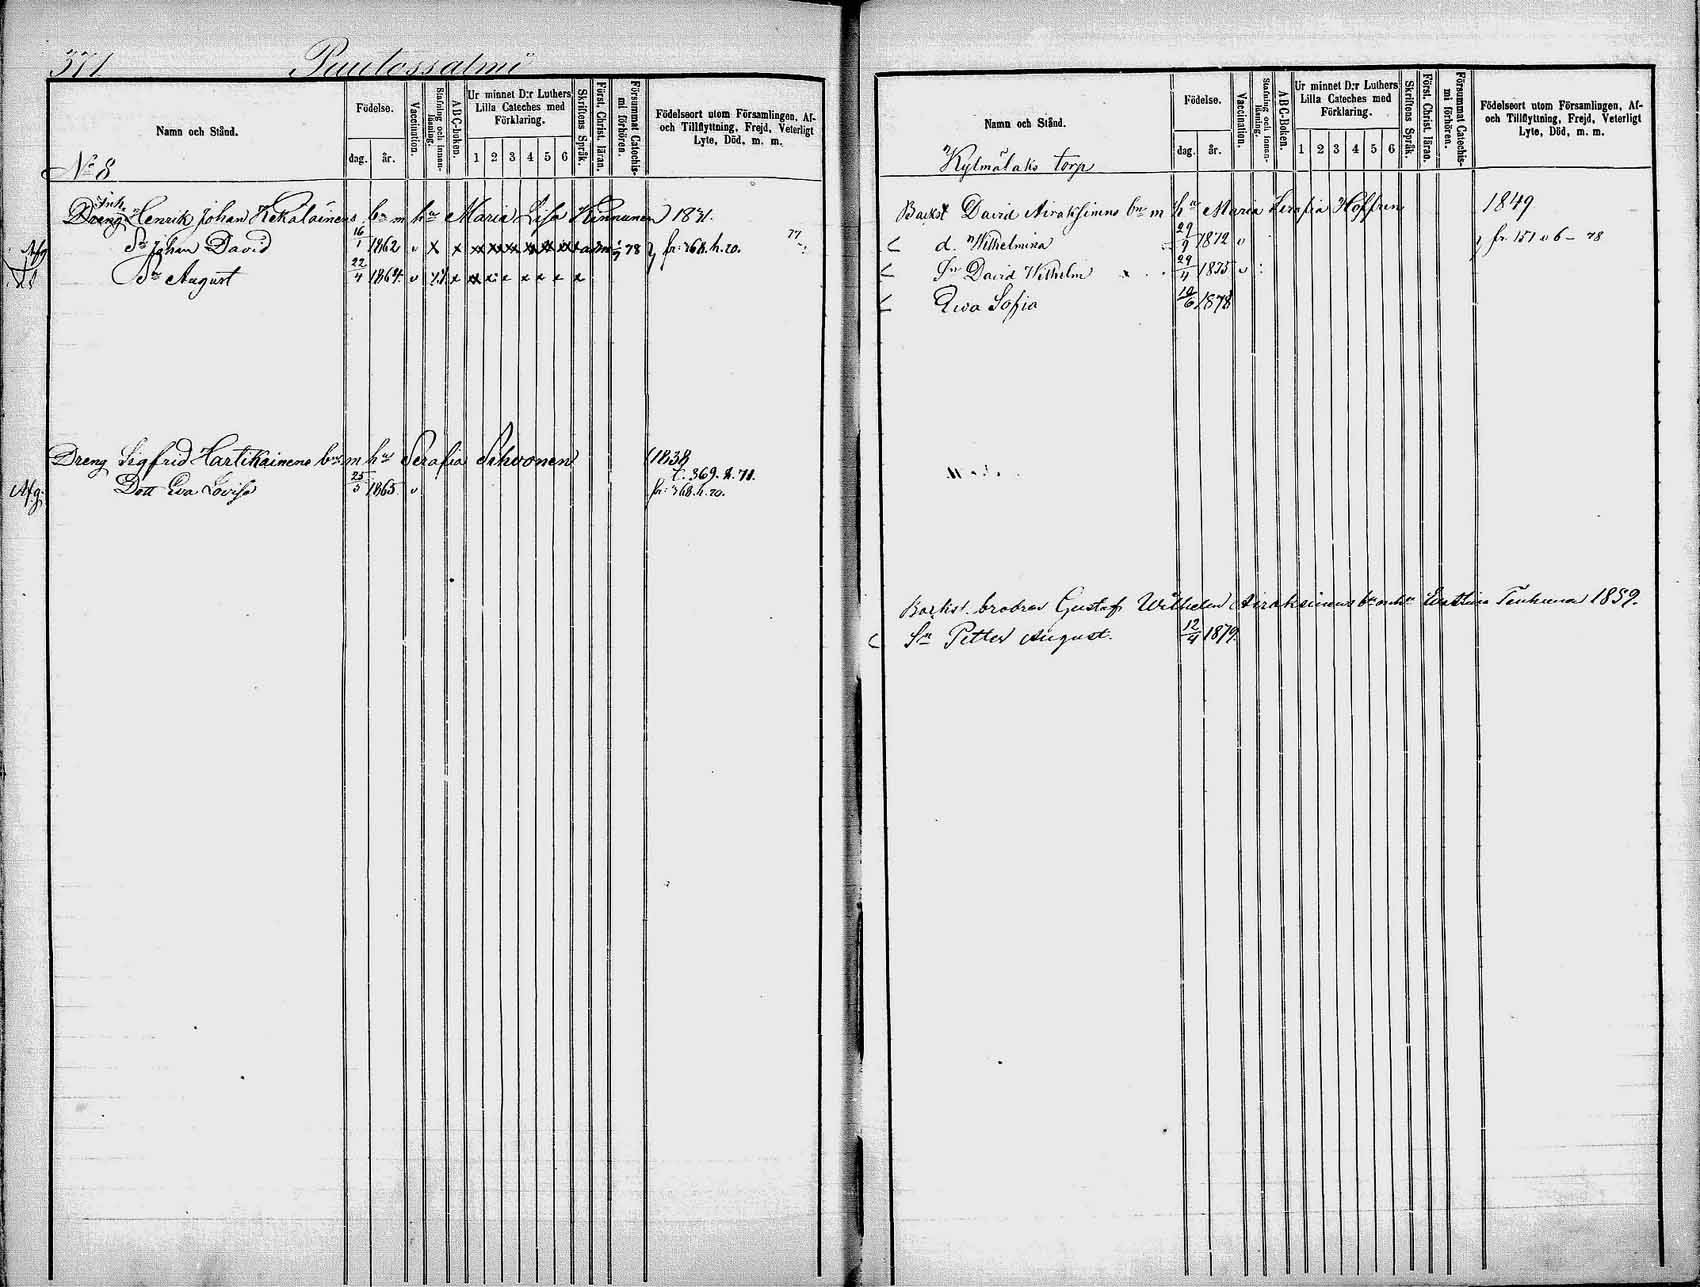 371. Puutossalmi
Namn och Stånd.
Födelse.
dag. år.
Vaccination.
Stafning och innan-läsning.
ABC-boken.
Ur minnet D:r Luthers Lilla Cateches med Förklaring.
1 2 3 4 5 6
Skriftens Språk.
Först. Christ. läran.
Försummat Catechis-mi förhören.
Födelseort utom Församlingen, Af- och Tillflyttning, Frejd, Veterligt Lyte, Död, m. m.
No 8
Inh.
Dreng Henrik Johan Kekäläinens bn m hu Maria Lisa Kinnunen 1831.
Sn Johan David 16/1 1862 v x x 78 fr: 368. h. 70. 77
Sn August 22/4 1864. v x x x x x x
Dreng Sigfrid Hartikainens bn m hu Serafia Sihvonen 1838
t. 369. 71.
Afg. Dott Eva Lovisa 25/5 1865 v fr: 368. h. 70.
Namn och Stånd.
Födelse.
dag. år.
Vaccination.
Stafning och innan-läsning.
ABC-Boken.
Ur minnet D:r Luthers Lilla Cateches med Förklaring.
1 2 3 4 5 6
Skriftens Språk.
Först. Christ. läran.
Försummat Catechis-mi förhören.
Födelseort utom Församlingen, Af- och Tillflyttning, Frejd, Veterligt Lyte, Död, m. m.
Kylmälaks torp
Backst David Airaksinens bn m hu Maria Serafia Hoffren 1849
d. Wilhelmina 29/9 1872 v fr. 151 v 6 - 78
Sn David Wilhelm 29/4 1875 v
Eva Sofia 10/6 1878
Backst. brodren Gustaf Wilhelm Airaksinens bn m hu Tenhunen 1859.
Sn Petter August. 12/4 1879.